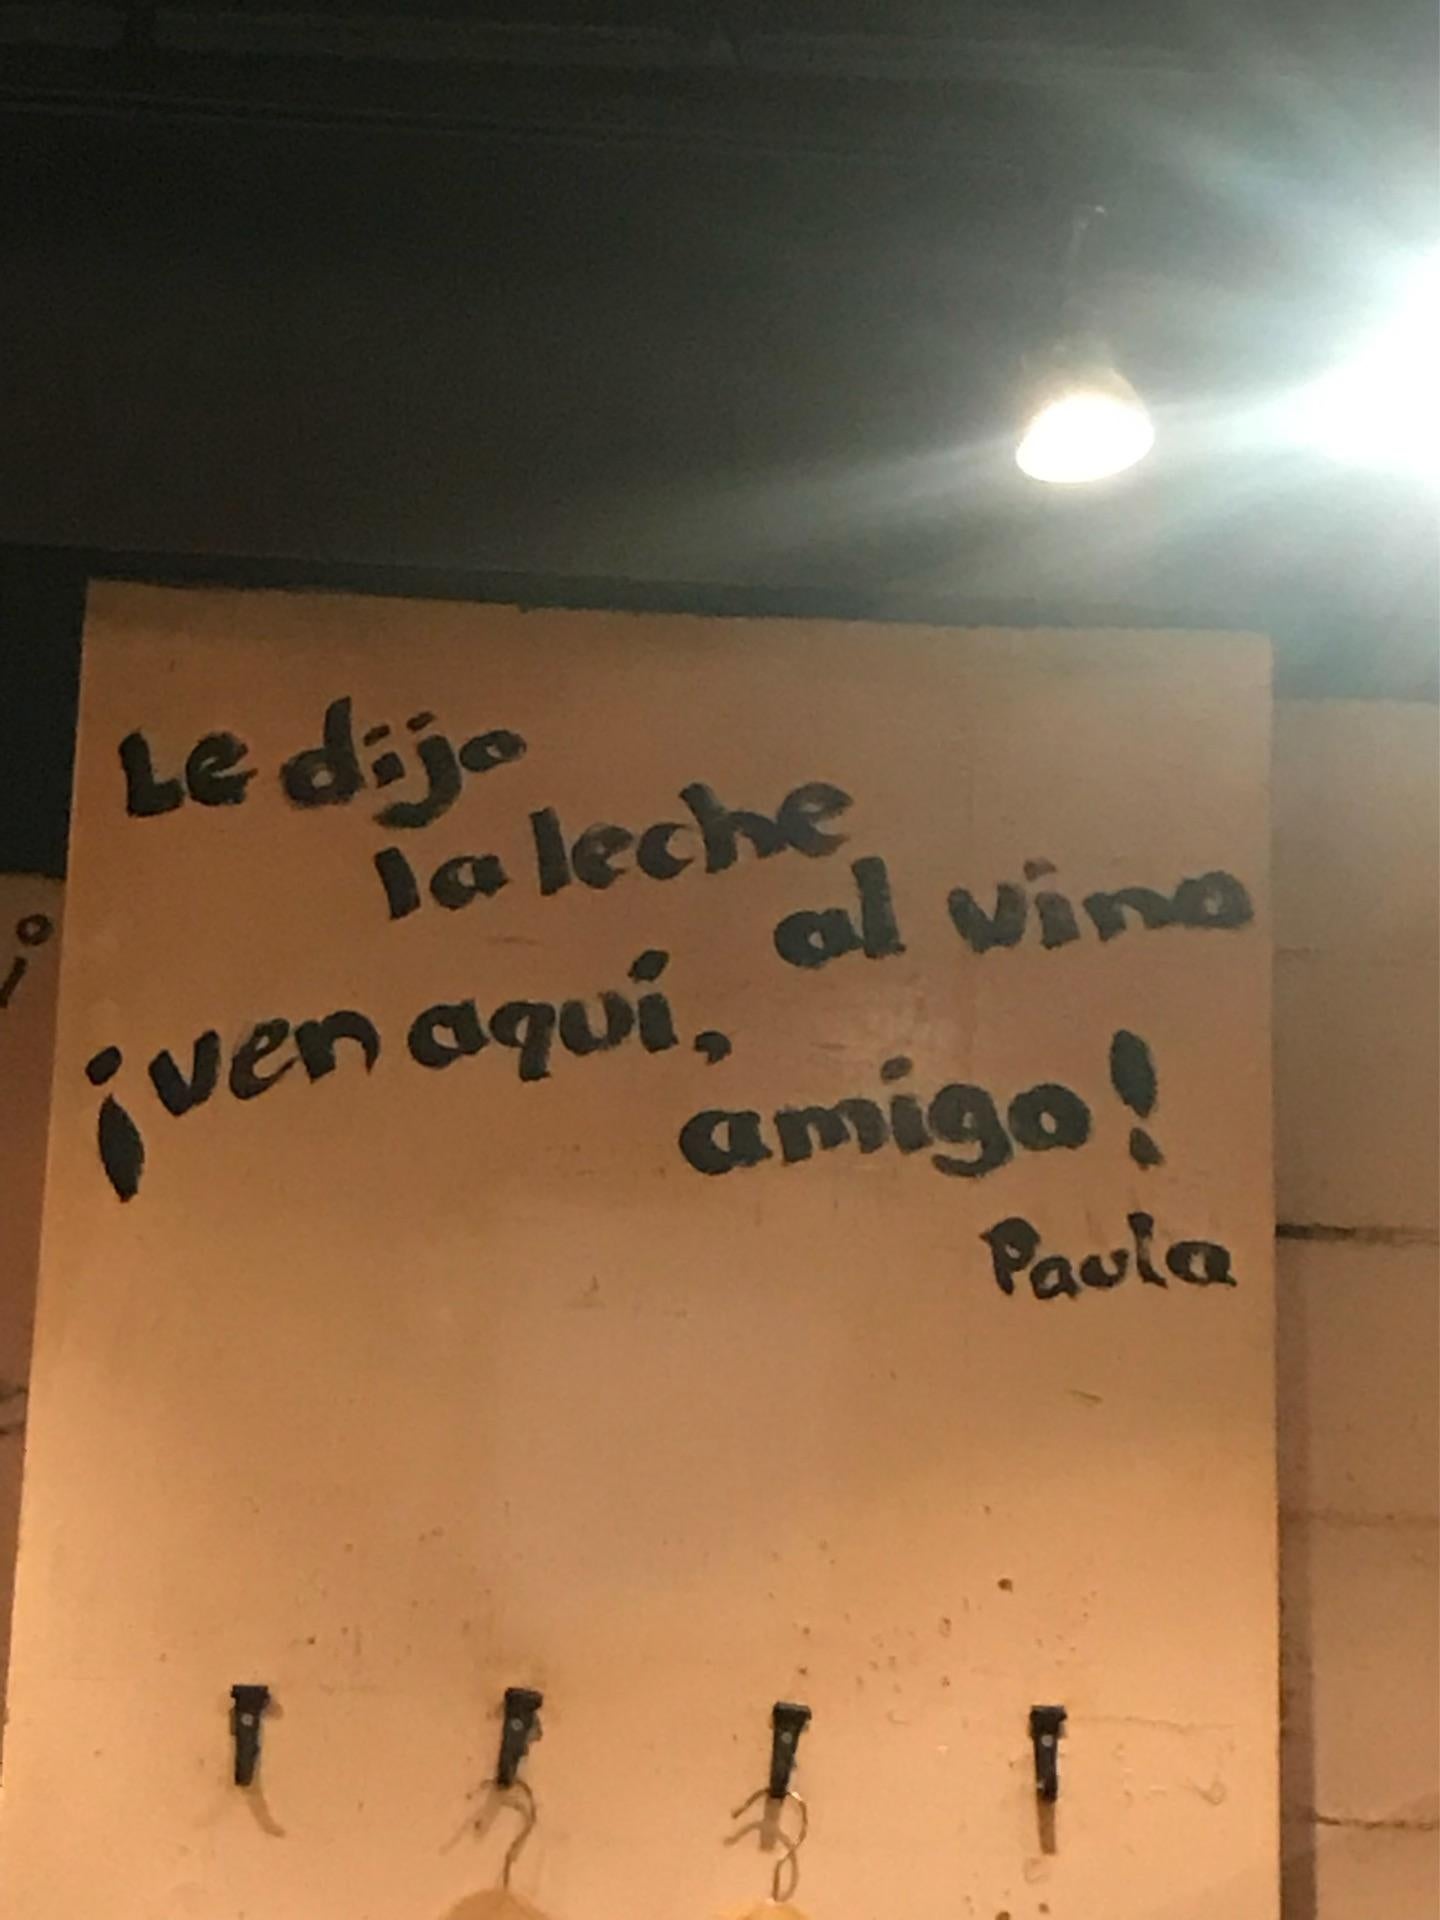 Le dijo
la leche
al vino
¡ven aquí,
amigo!
Paula